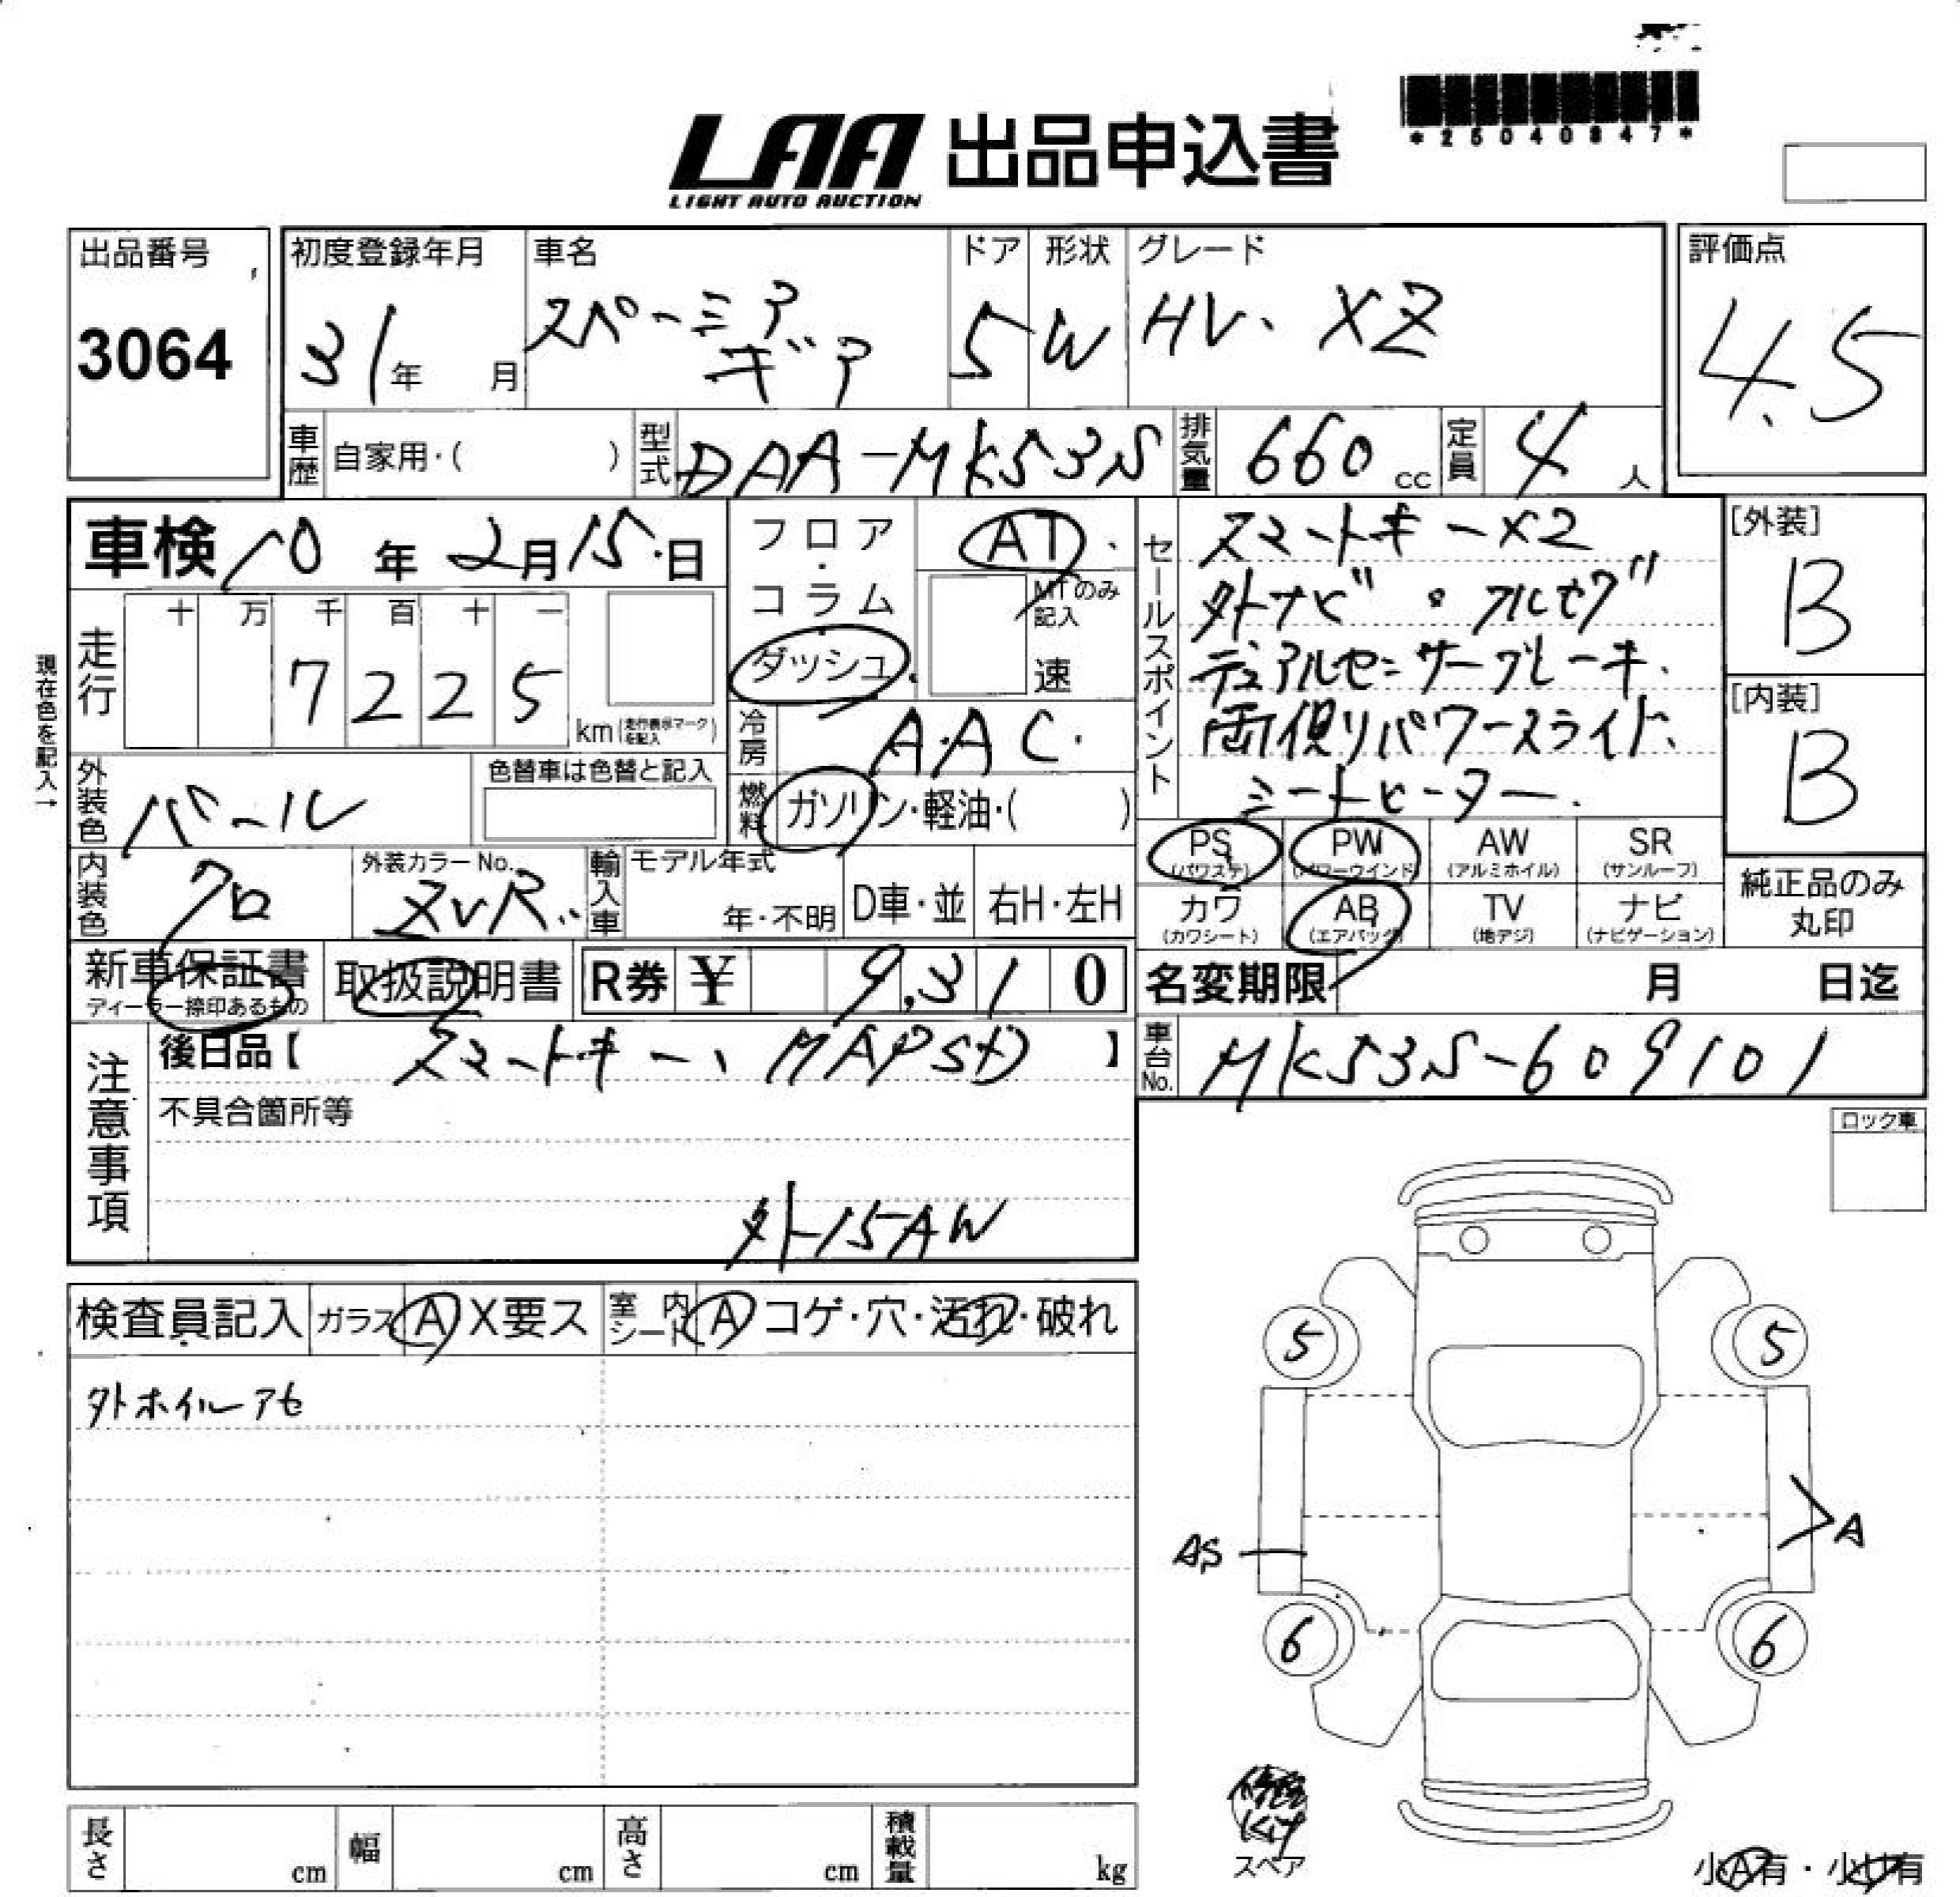 *25040847*
LAA 出品申込書
LIGHT AUTO AUCTION
出品番号
3064
初度登録年月
31年 月
車名
スペーシア
ギア
ドア
5
形状
W
グレード
HV、XZ
評価点
4.5
車歴
自家用・( )
型式
DAA-MK53S
排気量
660 cc
定員
4 人
車検 10 年 2月15日
フロア・コラム・ダッシュ
AT
MTのみ記入
速
走行
十 万 千 百 十 一
7 2 2 5
km(走行表示マークを記入)
現在色を記入→
冷房
A.A C.
燃料
ガソリン・軽油・( )
セールスポイント
スマートキーX2
外ナビ・フルセグ
デュアルセンサーブレーキ.
両側リパワースライド、
シートヒーター.
[外装]
B
[内装]
B
外装色
パール
色替車は色替と記入
内装色
クロ
外装カラーNo.
ZVR
輸入車
モデル年式
年・不明
D車・並
右H・左H
PS
(パワステ)
PW
(パワーウインド)
AW
(アルミホイル)
SR
(サンルーフ)
カワ
(カワシート)
AB
(エアバッグ)
TV
(地デジ)
ナビ
(ナビゲーション)
純正品のみ
丸印
新車保証書
ディーラー捺印あるもの
取扱説明書
R券 ¥ 9,310
名変期限 月 日迄
注意事項
後日品【 スマートキー、MAPSD 】
車台No.
MK53S-609101
不具合箇所等
外15AW
ロック車
検査員記入
ガラス A X要ス
室内シート A コゲ・穴・汚れ・破れ
外ホイルアセ
5
5
AS
A
6
6
修理
Kit
スペア
長さ cm
幅 cm
高さ cm
積載量 kg
小A有・小U有